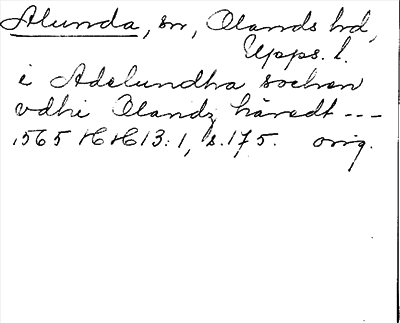 Alunda, sn, Olands hd,
Upps. l.
i Adelundha sochen
vdhi Olandz häredt ---
1565 HH 13:1, s. 175. orig.